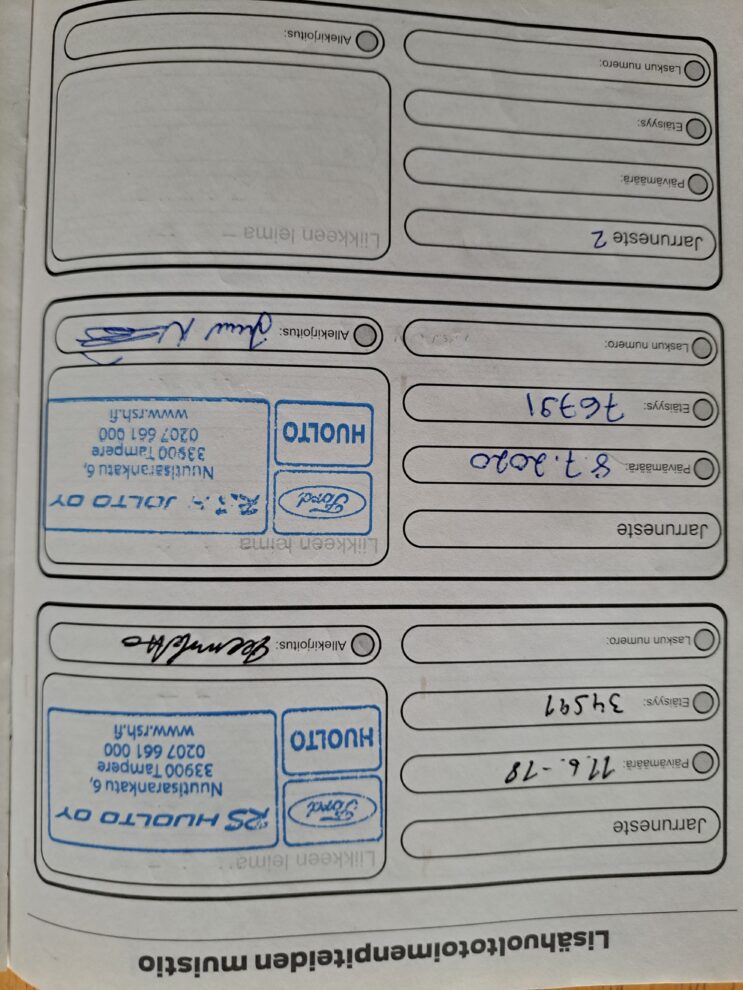 Lisähuoltotoimenpiteiden muistio
Jarruneste
Päivämäärä: 11.6.-18
Etäisyys: 34591
Laskun numero:
Liikkeen leima
Ford
HUOLTO
RS HUOLTO OY
Nuutisarankatu 6,
33900 Tampere
0207 661 000
www.rsh.fi
Allekirjoitus:
Jarruneste
Päivämäärä: 8.7.2020
Etäisyys: 76791
Laskun numero:
Liikkeen leima
Ford
HUOLTO
OY
Nuutisarankatu 6,
33900 Tampere
0207 661 000
www.rsh.fi
Allekirjoitus:
Jarruneste 2
Päivämäärä:
Etäisyys:
Laskun numero:
Liikkeen leima
Allekirjoitus: